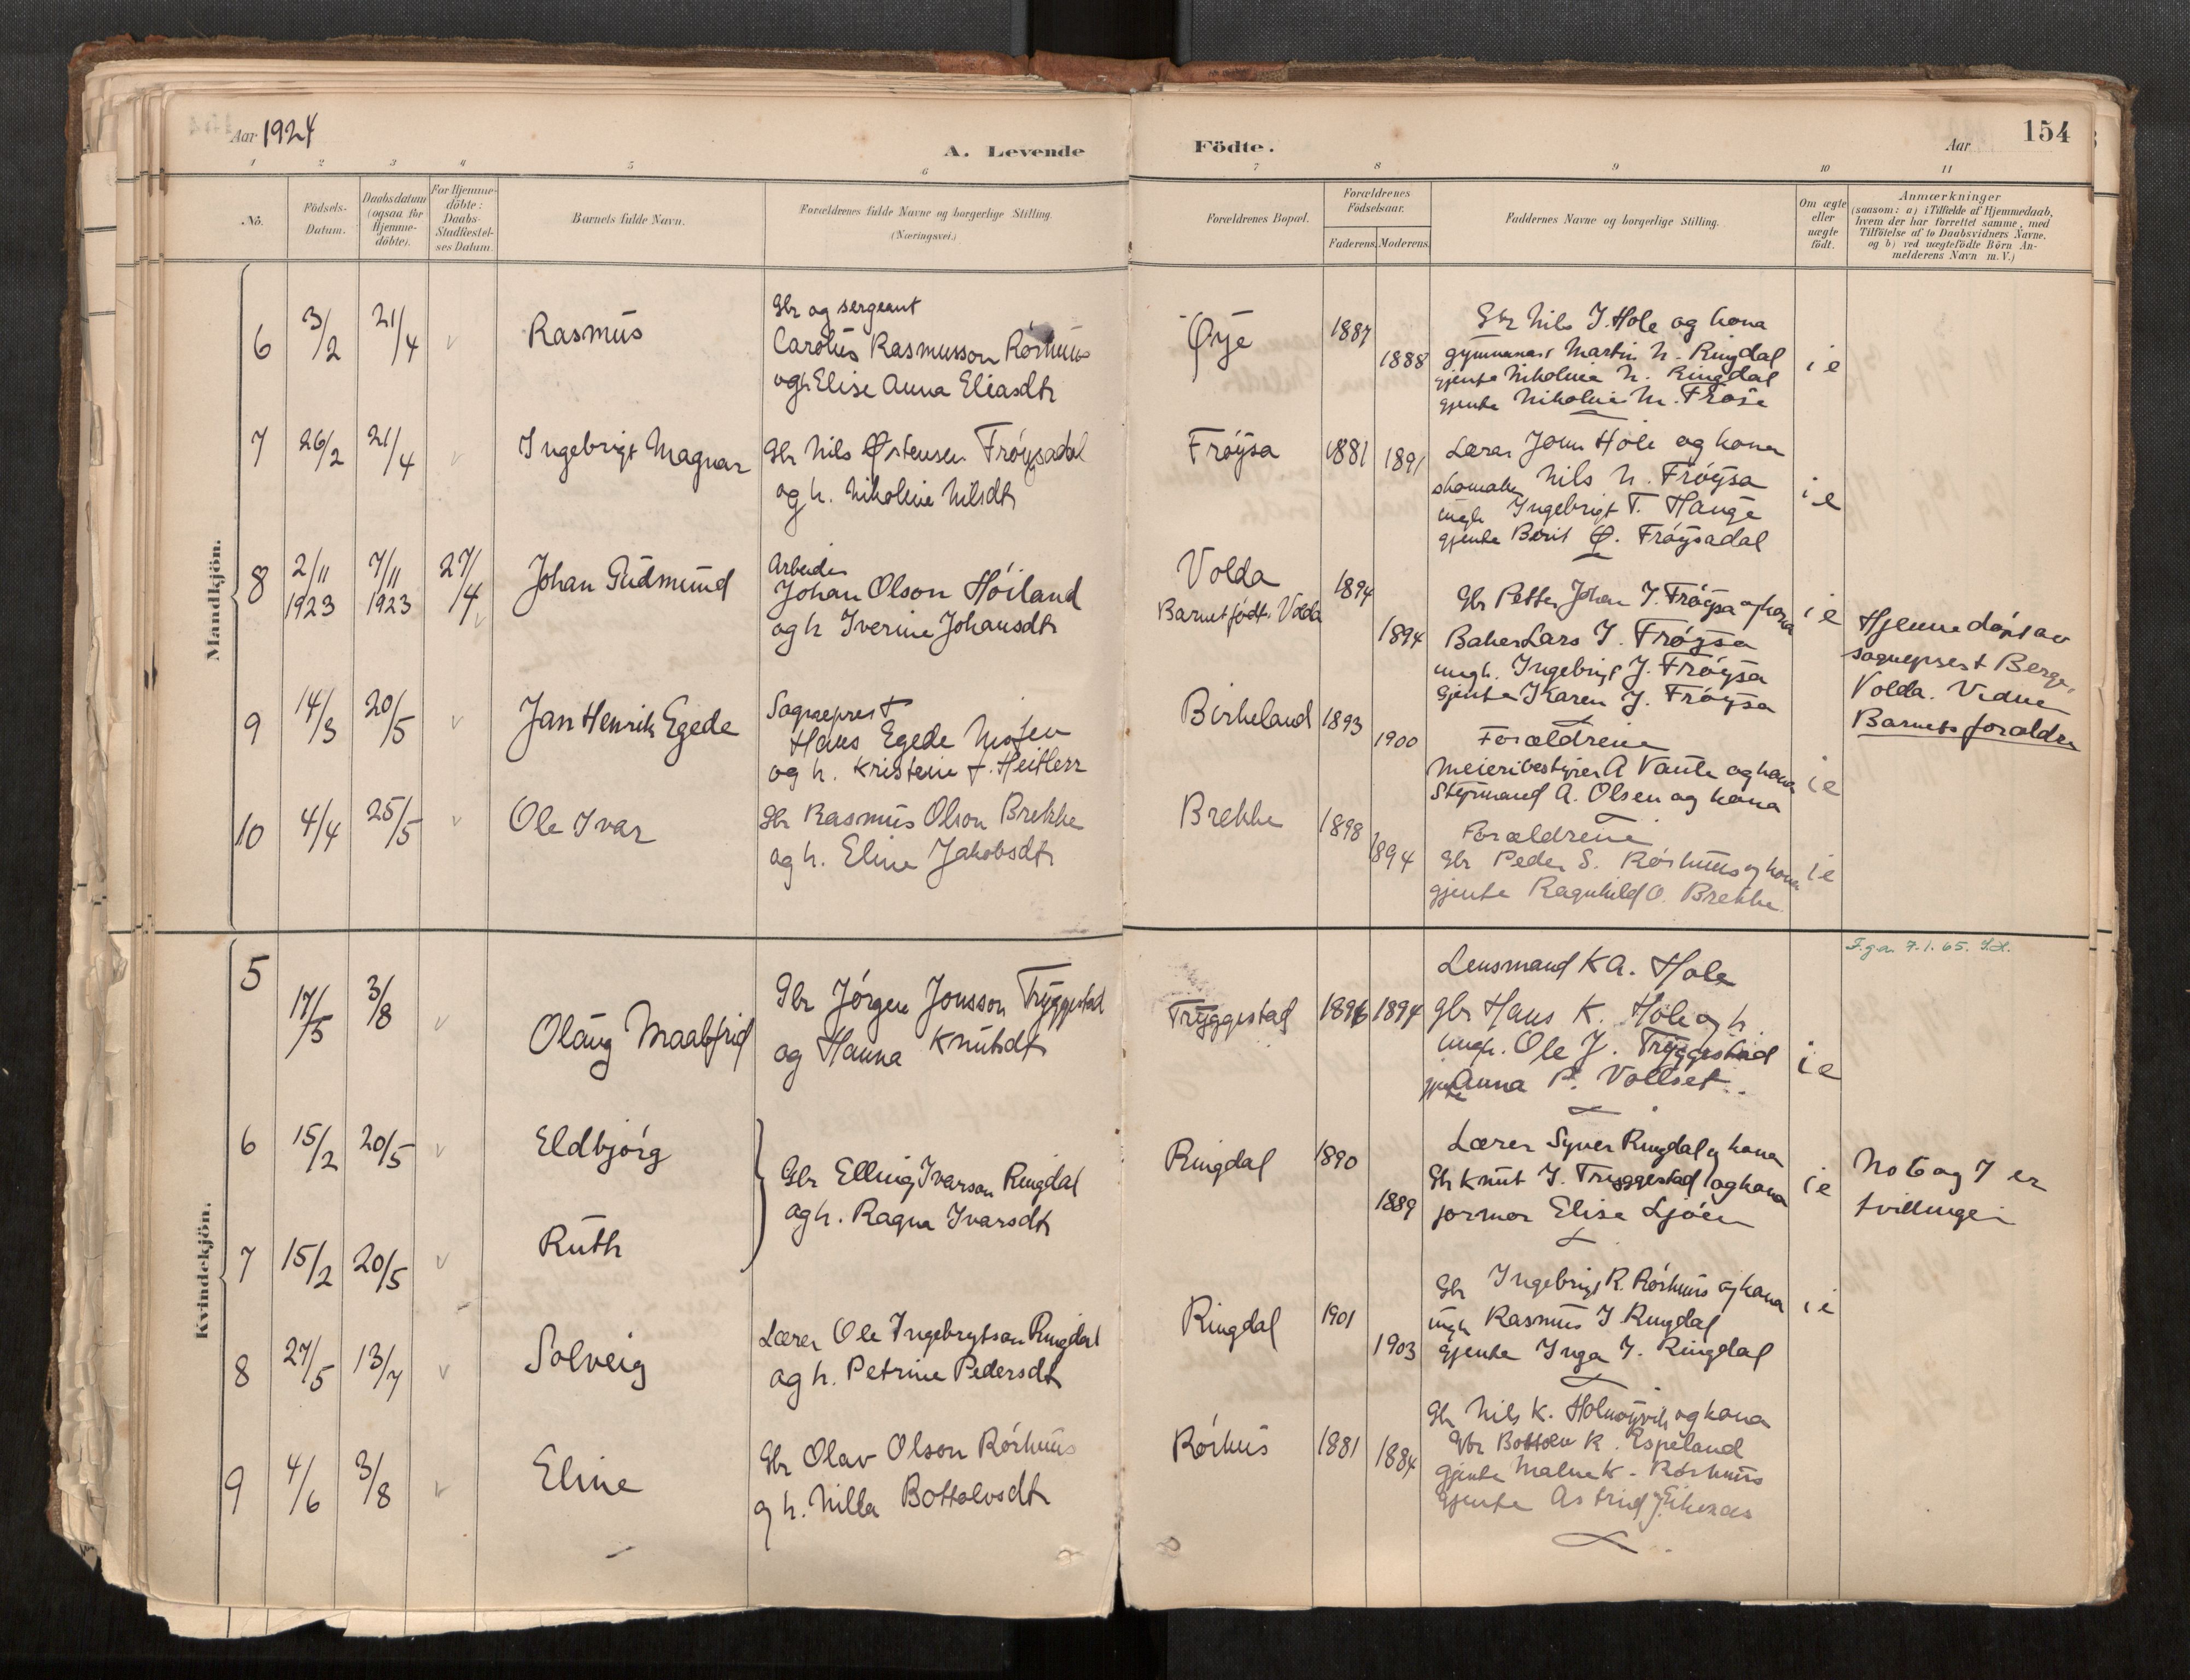 Aar 1924
A. Levende
Födte.
Aar
154
1 2 3 4 5 6 7 8 9 10 11
No.
Födsels-
Datum.
Daabsdatum
(ogsaa for
Hjemme-
döbte).
For Hjemme-
döbte:
Daabs-
Stadfæstel-
ses Datum.
Barnets fulde Navn.
Forældrenes fulde Navne og borgerlige Stilling.
(Næringsvei.)
Forældrenes Bopæl.
Forældrenes
Födselsaar.
Faderens. Moderens.
Faddernes Navne og borgerlige Stilling.
Om ægte
eller
uægte
födt.
Anmærkninger
(saasom: a) i Tilfælde af Hjemmedaab,
hvem der har forrettet samme, med
Tilföielse af to Daabsvidners Navne,
og b) ved uægtefödte Börn An-
melderens Navn m.V.)
Mandkjön.
6 3/2 21/4 Rasmus
Gbr og sergeant
Carolus Rasmusson Rórhuus
og h. Elise Anna Eliasdtr
Øye 1887 1888
Gbr Nils J. Hole og kona
gymnasast Martin N. Ringdal
gjenta Nikoline N. Ringdal
gjenta Nikoline M. Frøise
i e
7 26/2 21/4 Ingebrigt Magnar
Gbr Nils Østensen Frøysadal
og h. Nikoline Nilsdtr
Frøysa 1881 1891
Lærar John Hole og kona
skomaker Nils N. Frøysa
ungk Ingebrigt T. Hauge
gjenta Berit Ø. Frøysadal
i e
8 2/11 1923 7/11 1923 27/4 Johan Gudmund
Arbeider
Johan Olson Hóiland
og h Iverine Johansdtr
Volda
Barnet født i Volda
1894 1894
Gbr Petter Johan J. Frøysa og kona
Baker Lars J. Frøysa
ungk. Ingebrigt J. Frøysa
Gjenta Karen J. Frøysa
i e
Hjemmedøpt av
sogneprest Berge,
Volda. Vidne
Barnets foraldre
9 14/3 20/5 Jan Henrik Egede
Sogneprest
Hans Egede Nissen
og h. Kristene f. Heitlerr
Birkeland 1893 1900
Forældrene
Meieribestyrer A Vante og kona
Styrmand A. Olsen og kona
i e
10 4/4 25/5 Ole Ivar
Gbr Rasmus Olson Brekke
og h. Eline Jakobsdtr
Brekke 1898 1894
Forældrene
Gbr Peder S. Rórhuus og kona
gjenta Ragnhild O. Brekke
i e
Kvindekjön.
5 17/5 3/8 Olaug Maalfrid
Gbr Jórgen Jonsson Tryggestad
og Hanna Knutsdtr
Tryggestad 1896 1894
Lensmand K A. Hole
gbr Hans K. Hole og h.
ungk. Ole J. Tryggestad
gjenta Anna P. Vollset
i e
F.g.a. 7.1.65.
6 15/2 20/5 Eldbjórg
7 15/2 20/5 Ruth
Gbr Elling Ivarson Ringdal
og h. Ragna Ivarsdtr
Ringdal 1890 1889
Lærer Syver Ringdal og kona
Gbr Knut J. Tryggestad og kona
jormor Elise Ljóen
i e
No 6 og 7 er
tvillinger
8 27/5 13/7 Solveig
Lærer Ole Ingebrigtson Ringdal
og h. Petrine Pedersdtr
Ringdal 1901 1903
Gbr Ingebrigt R. Rórhuus og kona
ungk Rasmus I Ringdal
Gjenta Inga I. Ringdal
i e
9 4/6 3/8 Eline
Gbr Olav Olson Rórhuus
og h. Nilla Bottolvsdtr
Rórhus 1881 1884
Gbr Nils K. Holmøyvik og kona
Gbr Bottolv R. Espeland
Gjenta Malene K. Rórhuus
Gjenta Astrid J. Eikenæs